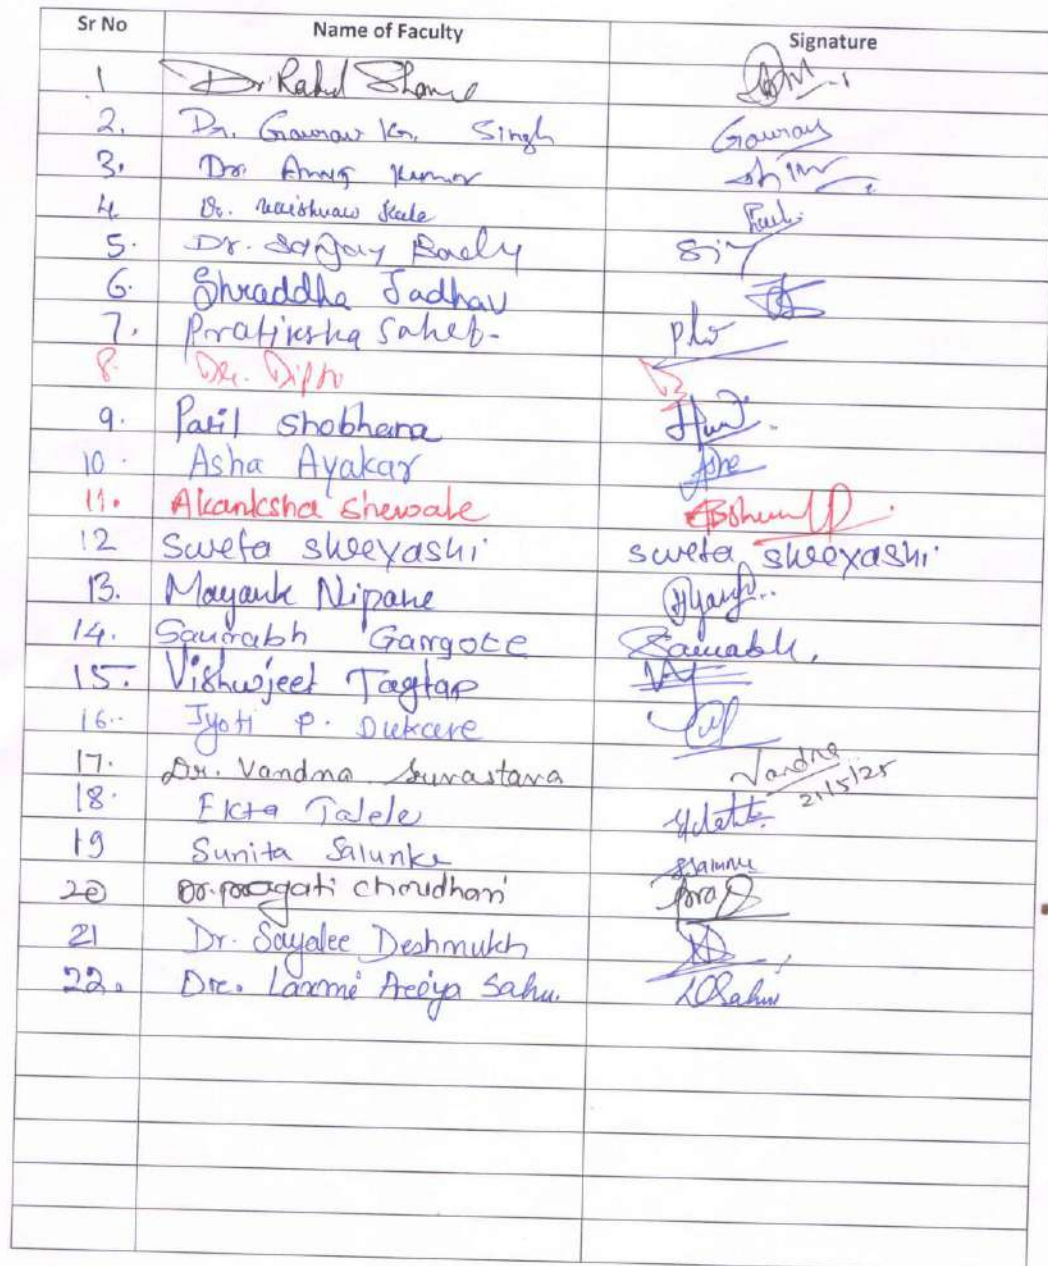 Sr No Name of Faculty Signature
1 Dr Rahul
2. Dr. Gaurav Kr. Singh Gaurav
3. Dr. Anuj Kumar
4. Dr. Vaishnavi Kale
5. Dr. Sanjay
6. Shraddha Jadhav
7. Pratiksha Saheb-
8. Dr. Dipti
9. Patil Shobhana
10. Asha Ayakar Ashe
11. Akanksha Shewale
12 Sweta Shreyashi Sweta Shreyashi
13. Mayank Nipane
14. Saurabh Gargote Saurabh.
15. Vishwjeet Jagtap
16. Jyoti P. Dukare
17. Dr. Vandna Srivastava Vandna
21/5/25
18. Ekta Talele
19 Sunita Salunke
20 Dr. pragati choudhari
21 Dr. Sayalee Deshmukh
22. Dr. Laxmi Priya Sahu. LPSahu